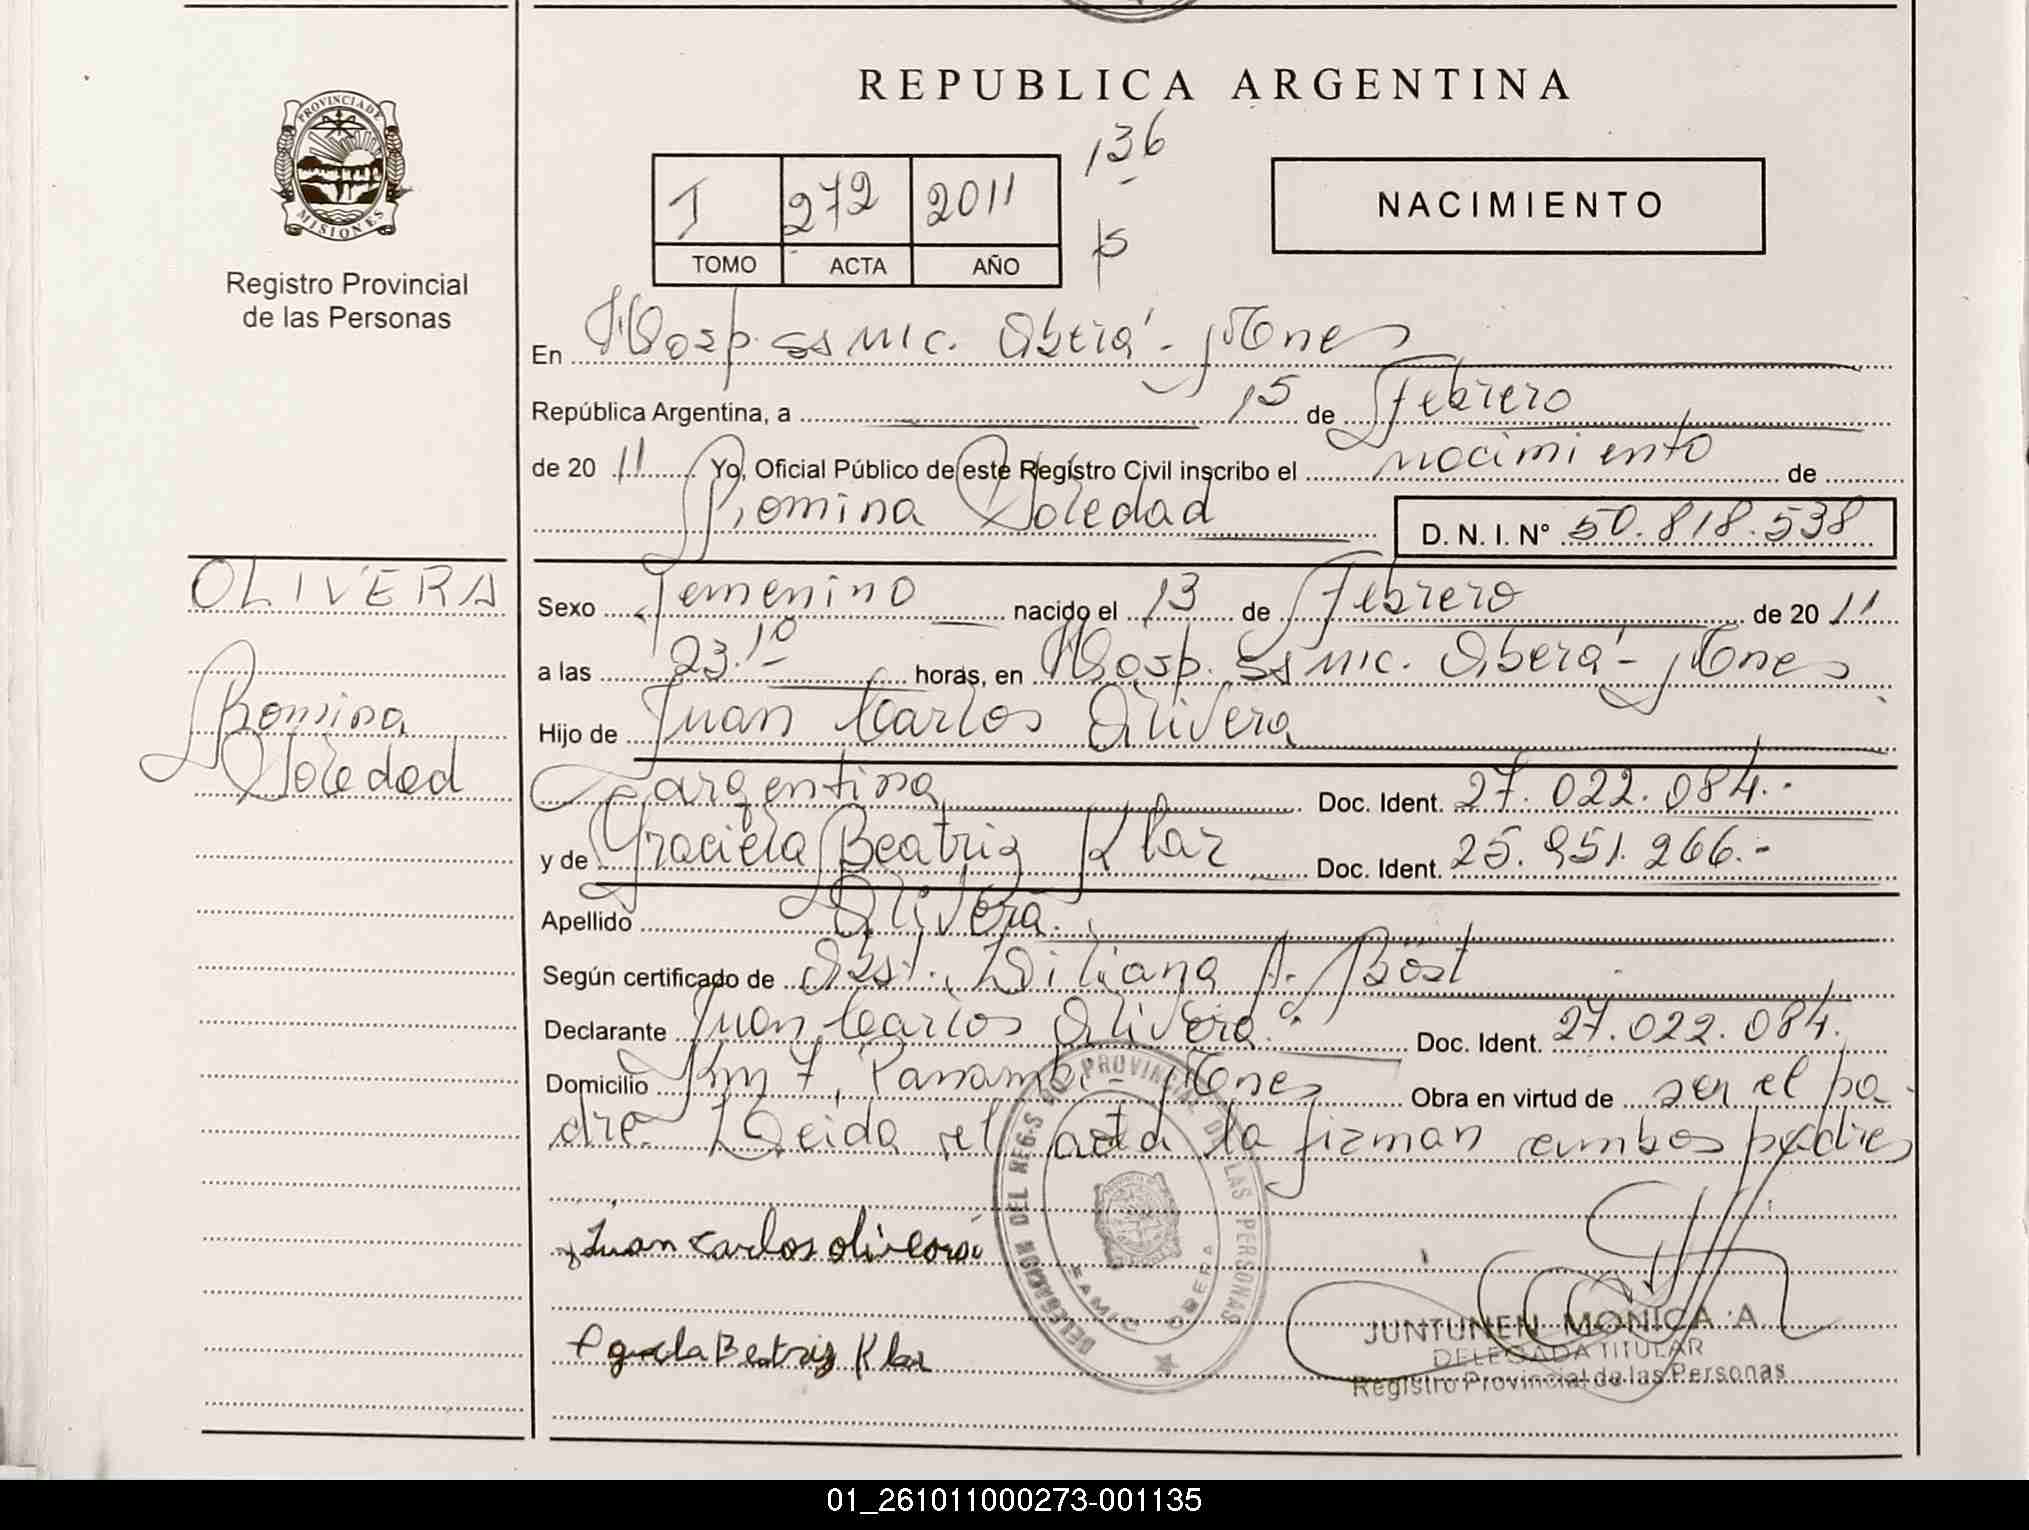 REPUBLICA ARGENTINA
136
PROVINCIA DE
MISIONES
Registro Provincial
de las Personas
I 272 2011
TOMO ACTA AÑO
NACIMIENTO
En Hosp. SAMIC. Oberá - Mnes
República Argentina, a 15 de Febrero
de 2011 Yo, Oficial Público de este Registro Civil inscribo el nacimiento de
Romina Soledad D. N. I. N° 50.818.538
OLIVERA
Romina
Soledad
Sexo Femenino nacido el 13 de Febrero de 2011
a las 23.10 horas, en Hosp. SAMIC. Oberá - Mnes
Hijo de Juan Carlos Olivera
argentina Doc. Ident. 27.022.084.-
y de Graciela Beatriz Klar Doc. Ident. 25.951.266.-
Apellido Olivera.
Según certificado de Obst. Liliana A. Böst
Declarante Juan Carlos Olivera. Doc. Ident. 27.022.084.
Domicilio Km 7, Panambi - Mnes Obra en virtud de ser el pa-
dre. Leida el acta la firman ambos padres
Juan Carlos Olivera
Beatriz Klar
DELEGACION DEL REG. PROVINCIAL DE LAS PERSONAS
SAMIC OBERA
JUNTUNEN MONICA A
DELEGADA TITULAR
Registro Provincial de las Personas
01_261011000273-001135